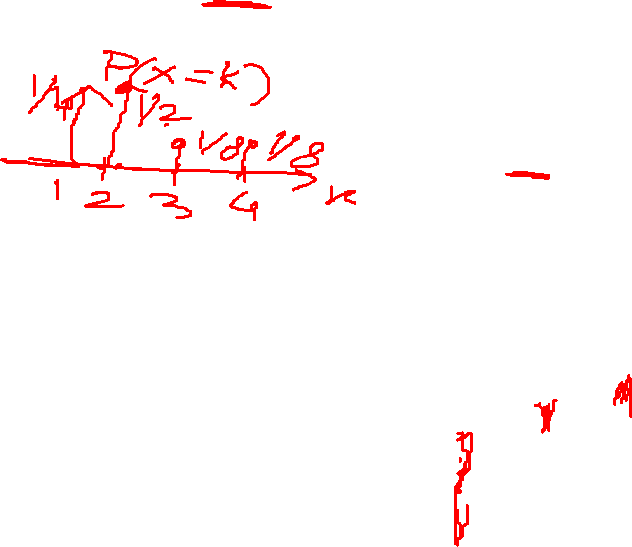 P(x=k)
1/4 1/2
1/8 1/8
1 2 3 4 k